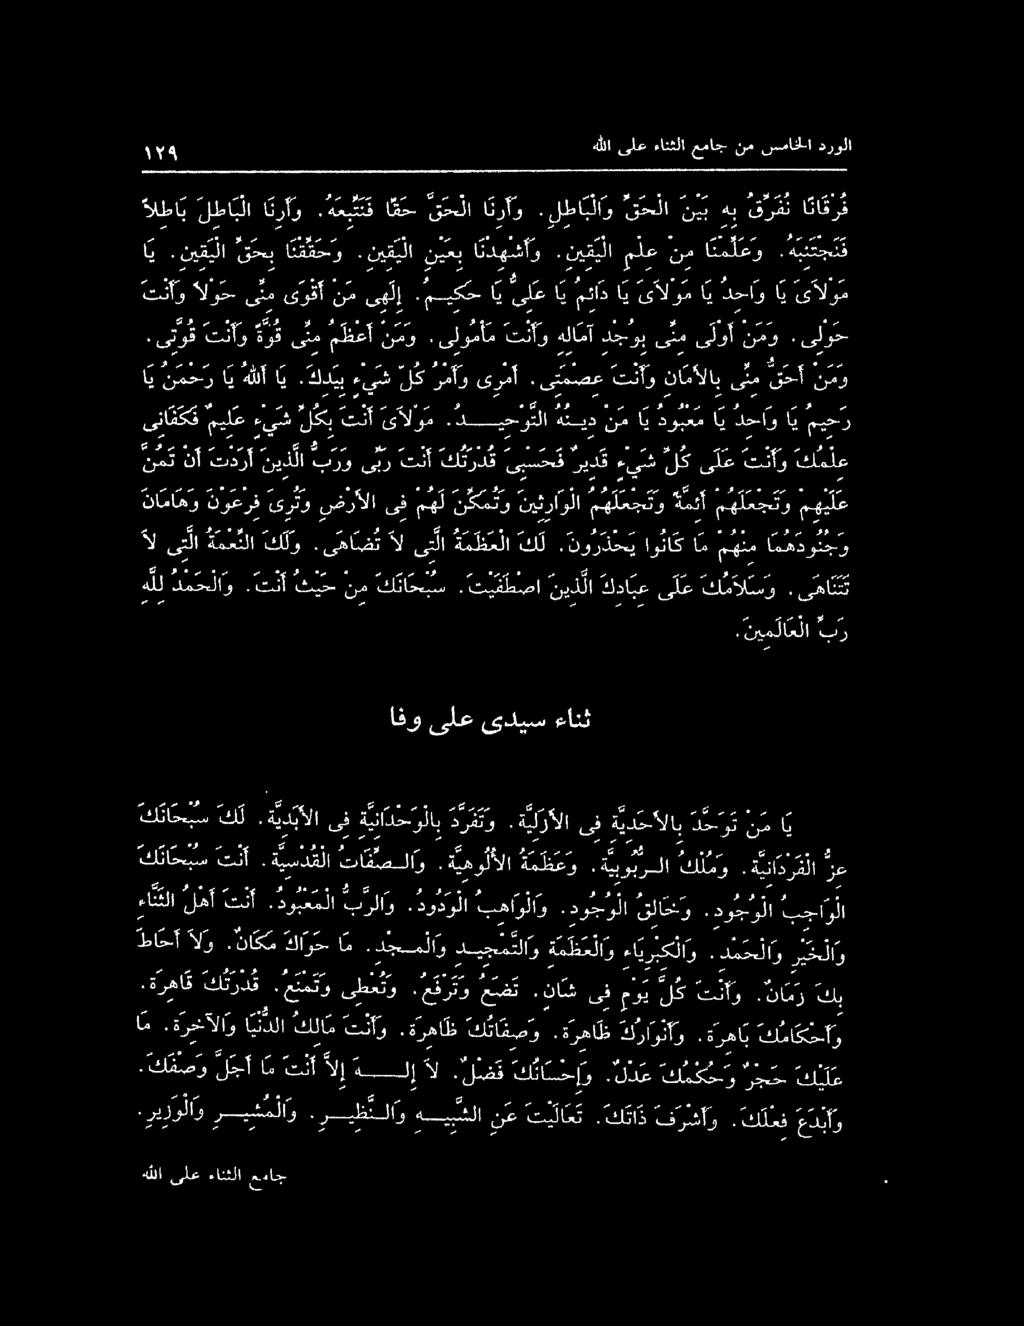 الورد الخامس من جامع الثناء على الله
١٢٩
فُرْقَانًا نُفَرِّقُ بِهِ بَيْنَ الْحَقِّ وَالْبَاطِلِ. وَأَرِنَا الْحَقَّ حَقًّا فَنَتَّبِعَهُ. وَأَرِنَا الْبَاطِلَ بَاطِلاً
فَنَجْتَنِبَهُ. وَعَلِّمْنَا مِنْ عِلْمِ الْيَقِينِ. وَأَشْهِدْنَا بِعَيْنِ الْيَقِينِ. وَحَقِّقْنَا بِحَقِّ الْيَقِينِ. يَا
مَوْلاَىَ يَا وَاحِدُ يَا مَوْلاَىَ يَا دَائِمُ يَا عَلِىُّ يَا حَكِيمُ. إِلَهِى مَنْ أَقْوَى مِنِّى حَوْلاً وَأَنْتَ
حَوْلِى. وَمَنْ أَوْلَى مِنِّى بِوُجْدِ آمَالِهِ وَأَنْتَ مَأْمُولِى. وَمَنْ أَعْظَمُ مِنِّى قُوَّةً وَأَنْتَ قُوَّتِى.
وَمَنْ أَحَقُّ مِنِّى بِالأَمَانِ وَأَنْتَ عِصْمَتِى. أَمْرِى وَأَمْرُ كُلِّ شَىْءٍ بِيَدِكَ. يَا أَللهُ يَا رَحْمَنُ يَا
رَحِيمُ يَا وَاحِدُ يَا مَعْبُودُ يَا مَنْ دِينُهُ التَّوْحِيدُ. مَوْلاَىَ أَنْتَ بِكُلِّ شَىْءٍ عَلِيمٌ فَكَفَانِى
عِلْمُكَ وَأَنْتَ عَلَى كُلِّ شَىْءٍ قَدِيرٌ فَحَسْبِىَ قُدْرَتُكَ أَنْتَ رَبِّى وَرَبُّ الَّذِينَ أَرَدْتَ أَنْ تَمُنَّ
عَلَيْهِمْ وَتَجْعَلَهُمْ أَئِمَّةً وَتَجْعَلَهُمُ الْوَارِثِينَ وَتُمَكِّنَ لَهُمْ فِى الأَرْضِ وَتُرِىَ فِرْعَوْنَ وَهَامَانَ
وَجُنُودَهُمَا مِنْهُمْ مَا كَانُوا يَحْذَرُونَ. لَكَ الْعَظَمَةُ الَّتِى لاَ تُضَاهَى. وَلَكَ النِّعْمَةُ الَّتِى لاَ
تَتَنَاهَى. وَسَلاَمُكَ عَلَى عِبَادِكَ الَّذِينَ اصْطَفَيْتَ. سُبْحَانَكَ مِنْ حَيْثُ أَنْتَ. وَالْحَمْدُ لِلَّهِ
رَبِّ الْعَالَمِينَ.
ثناء سيدى على وفا
يَا مَنْ تَوَحَّدَ بِالأَحَدِيَّةِ فِى الأَزَلِيَّةِ. وَتَفَرَّدَ بِالْوَحْدَانِيَّةِ فِى الأَبَدِيَّةِ. لَكَ سُبْحَانَكَ
عِزُّ الْفَرْدَانِيَّةِ. وَمُلْكُ الرُّبُوبِيَّةِ. وَعَظَمَةُ الأُلُوهِيَّةِ. وَالصِّفَاتُ الْقُدْسِيَّةِ. أَنْتَ سُبْحَانَكَ
الْوَاجِبُ الْوُجُودِ. وَخَالِقُ الْوُجُودِ. وَالْوَاهِبُ الْوَدُودُ. وَالرَّبُّ الْمَعْبُودُ. أَنْتَ أَهْلُ الثَّنَاءِ
وَالْخَيْرِ وَالْحَمْدِ. وَالْكِبْرِيَاءِ وَالْعَظَمَةِ وَالتَّمْجِيدِ وَالْمَجْدِ. مَا حَوَاكَ مَكَانٌ. وَلاَ أَحَاطَ
بِكَ زَمَانٌ. وَأَنْتَ كُلَّ يَوْمٍ فِى شَانٍ. تَضَعُ وَتَرْفَعُ. وَتُعْطِى وَتَمْنَعُ. قُدْرَتُكَ قَاهِرَة.
وَأَحْكَامُكَ بَاهِرَة. وَأَنْوَارُكَ ظَاهِرَة. وَصِفَاتُكَ ظَاهِرَة. وَأَنْتَ مَالِكُ الدُّنْيَا وَالآخِرَة. مَا
عَلَيْكَ حَجْرٌ وَحُكْمُكَ عَدْلٌ. وَإِحْسَانُكَ فَضْلٌ. لاَ إِلَهَ إِلاَّ أَنْتَ مَا أَجَلَّ وَصْفَكَ.
وَأَبْدَعَ فِعْلَكَ. وَأَشْرَفَ ذَاتَكَ. تَعَالَيْتَ عَنِ الشَّبِيهِ وَالنَّظِيرِ. وَالْمُشِيرِ وَالْوَزِيرِ.
جامع الثناء على الله